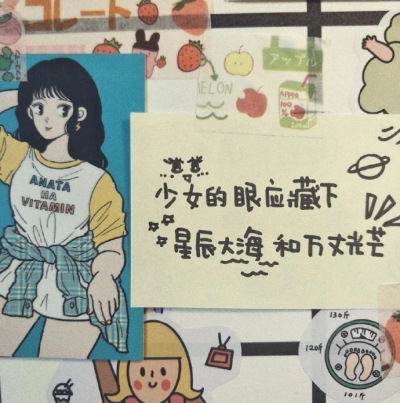 コレート
アップル
MELON
Apple
100
%
ANATA
HA
VITAMIN
少女的眼应藏下
星辰大海和万丈光芒
130斤
120斤
101斤